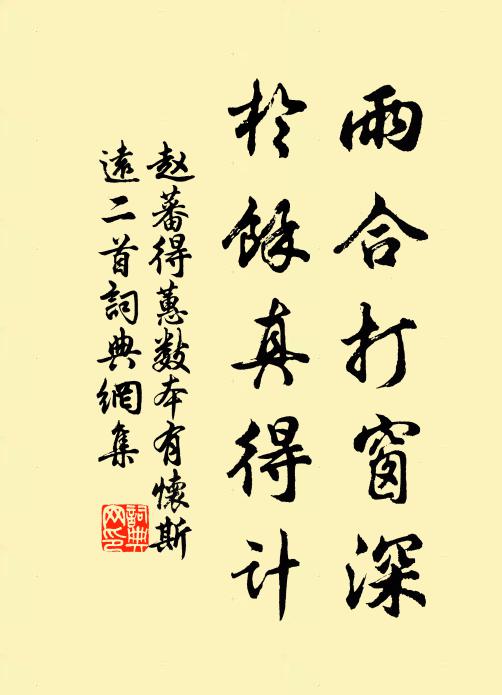 雨合打窗深
於餘真得計
赵蕃得蕙数本有懷斯
遠二首詞典網集
詞典网印